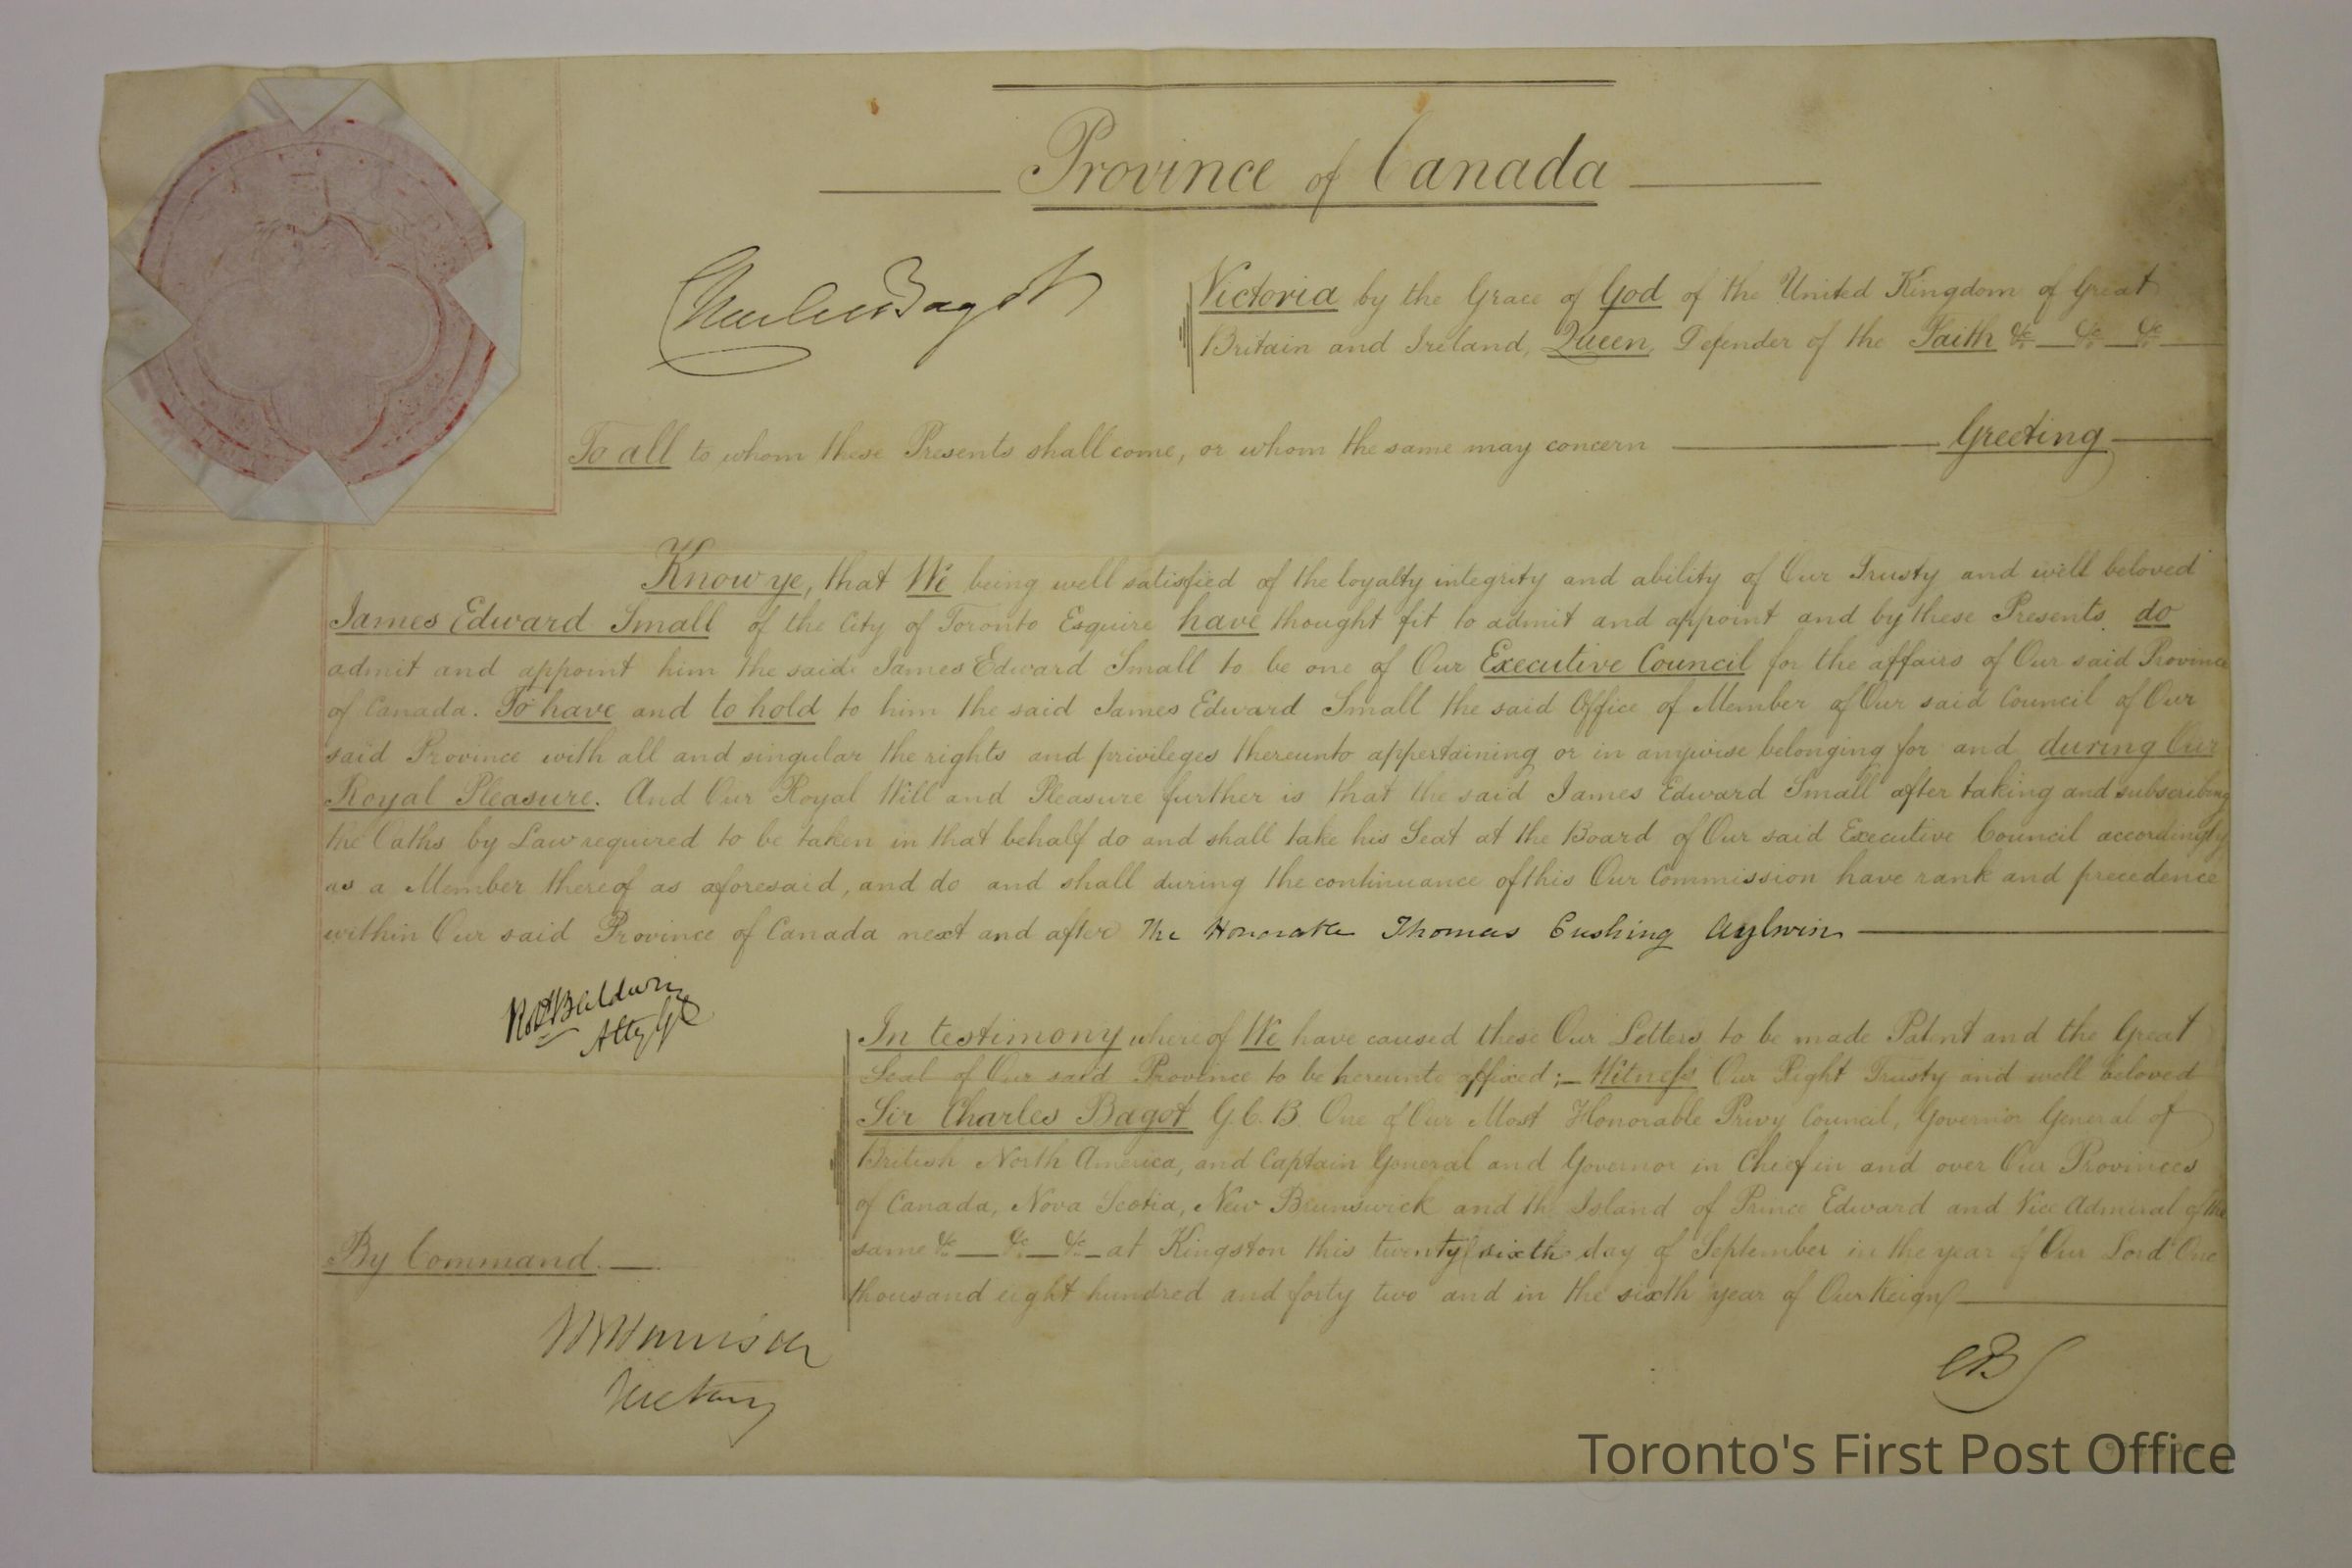 Province of Canada
Charles Bagot
Victoria by the Grace of God of the United Kingdom of Great
Britain and Ireland, Queen, Defender of the Faith &c &c &c
To all to whom these Presents shall come, or whom the same may concern Greeting
Know ye, that We being well satisfied of the loyalty integrity and ability of Our Trusty and well beloved
James Edward Small of the City of Toronto Esquire have thought fit to admit and appoint and by these Presents do
admit and appoint him the said James Edward Small to be one of Our Executive Council for the affairs of Our said Province
of Canada. To have and to hold to him the said James Edward Small the said Office of Member of Our said Council of Our
said Province with all and singular the rights and privileges thereunto appertaining or in anywise belonging for and during Our
Royal Pleasure. And Our Royal Will and Pleasure further is that the said James Edward Small after taking and subscribing
the Oaths by Law required to be taken in that behalf do and shall take his Seat at the Board of Our said Executive Council accordingly
as a Member thereof as aforesaid, and do and shall during the continuance of this Our Commission have rank and precedence
within Our said Province of Canada next and after The Honorable Thomas Cushing Aylwin
Robt Baldwin
Atty Gl
In testimony whereof We have caused these Our Letters to be made Patent and the Great
Seal of Our said Province to be hereunto affixed;— Witness Our Right Trusty and well beloved
Sir Charles Bagot G.C.B. One of Our Most Honorable Privy Council, Governor General of
British North America, and Captain General and Governor in Chief in and over Our Provinces
of Canada, Nova Scotia, New Brunswick and the Island of Prince Edward and Vice Admiral of the
same &c — &c — &c — at Kingston this twenty sixth day of September in the year of Our Lord One
thousand eight hundred and forty two and in the sixth year of Our Reign
By Command.
Harrison
Secretary
CB
Toronto's First Post Office